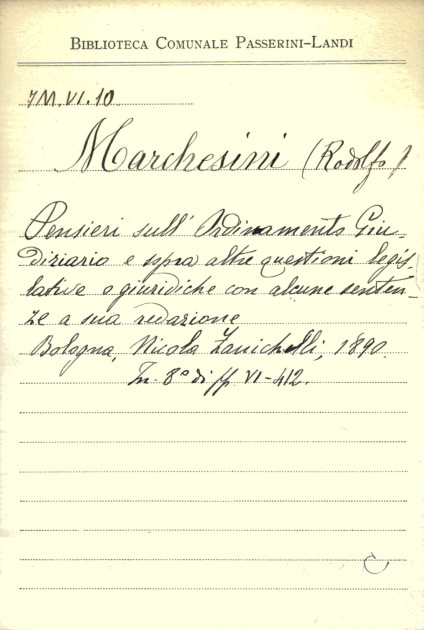 BIBLIOTECA COMUNALE PASSERINI-LANDI
7M.VI.10
Marchesini (Rodolfo)
Pensieri sull'Ordinamento Giu-
diziario e sopra altre questioni legis-
lative o giuridiche con alcune senten-
ze a sua redazione
Bologna, Nicola Zanichelli, 1890.
In 8° di pp VI-412.
C